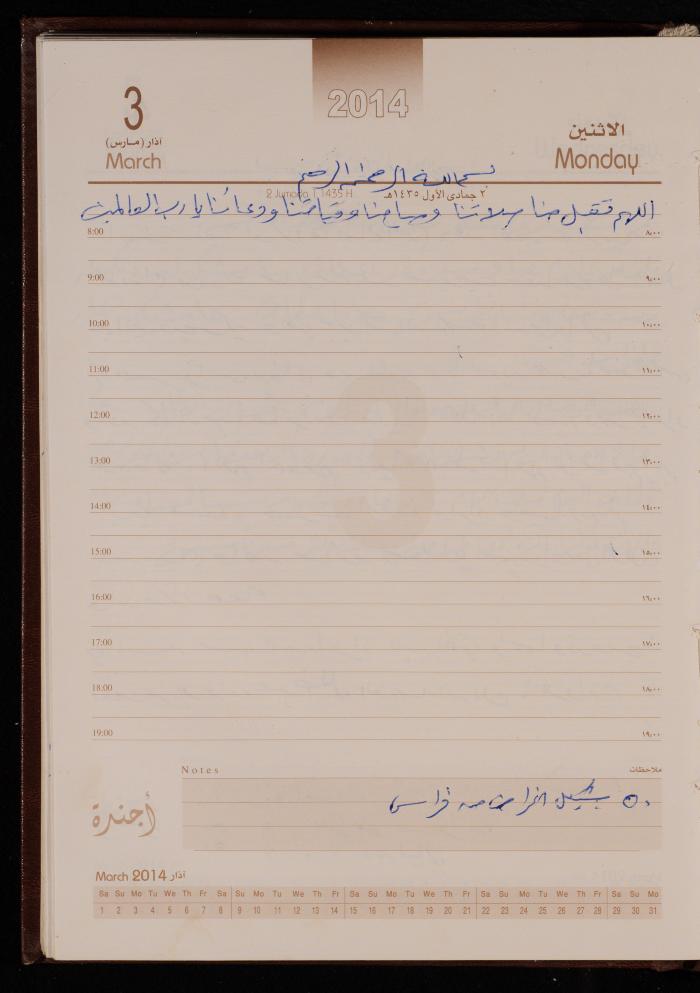 2014
3
آذار (مارس)
March
الاثنين
Monday
بسم الله الرحمن الرحيم
2 Jumada I, 1435 H
٢ جمادى الأول ١٤٣٥هـ
اللهم تقبل منا صلاتنا وصيامنا وقيامنا ودعائنا يا رب العالمين
8:00 ٨،٠٠
9:00 ٩،٠٠
10:00 ١٠،٠٠
11:00 ١١،٠٠
12:00 ١٢،٠٠
3
13:00 ١٣،٠٠
14:00 ١٤،٠٠
15:00 ١٥،٠٠
16:00 ١٦،٠٠
17:00 ١٧،٠٠
18:00 ١٨،٠٠
19:00 ١٩،٠٠
Notes ملاحظات
من فراس
أجندة
March 2014 آذار
Sa Su Mo Tu We Th Fr Sa Su Mo Tu We Th Fr Sa Su Mo Tu We Th Fr Sa Su Mo Tu We Th Fr Sa Su Mo
1 2 3 4 5 6 7 8 9 10 11 12 13 14 15 16 17 18 19 20 21 22 23 24 25 26 27 28 29 30 31